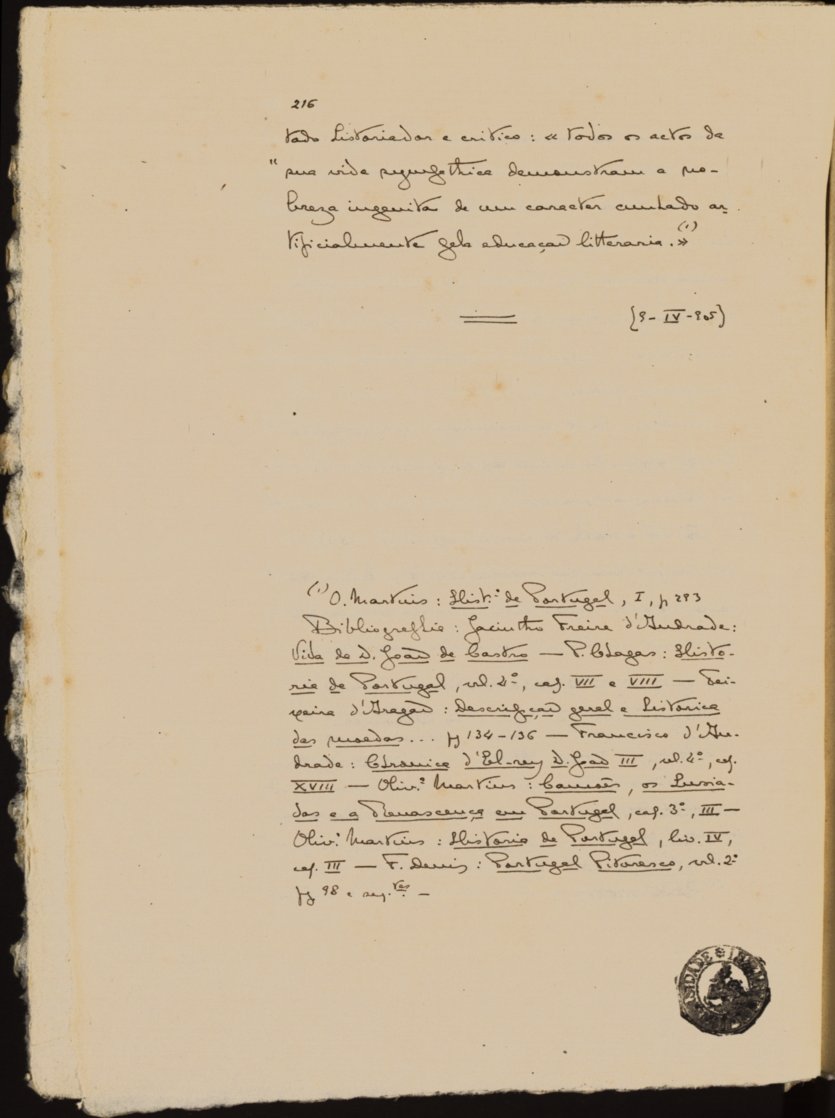 216
tado historiador e critico: « todos os actos da
" sua vida sympathica demonstram a no-
breza ingenita de um caracter cunhado ar-
tificialmente pela educação litteraria.» (1)
[9-IV-905]
(1) O. Martins: Hist.ª de Portugal, I, p 293
Bibliographia: Jacintho Freire d'Andrade:
Vida de D. João de Castro — P. Chagas: Histo-
ria de Portugal, vol. 4º, cap. VII e VIII — Tei-
xeira d'Aragão: Descripção geral e historica
das moedas... pg 134-136 — Francisco d'An-
drade: Chronica d'El-rey D. João III, vol. 4º, cap.
XVIII — Oliv.ª Martins: Camões, os Lusia-
das e a Renascença em Portugal, cap. 3º, III —
Oliv.ª Martins: Historia de Portugal, liv. IV,
cap. III — F. Denis: Portugal Pitoresco, vol. 2º
pg 98 e seg.tes —